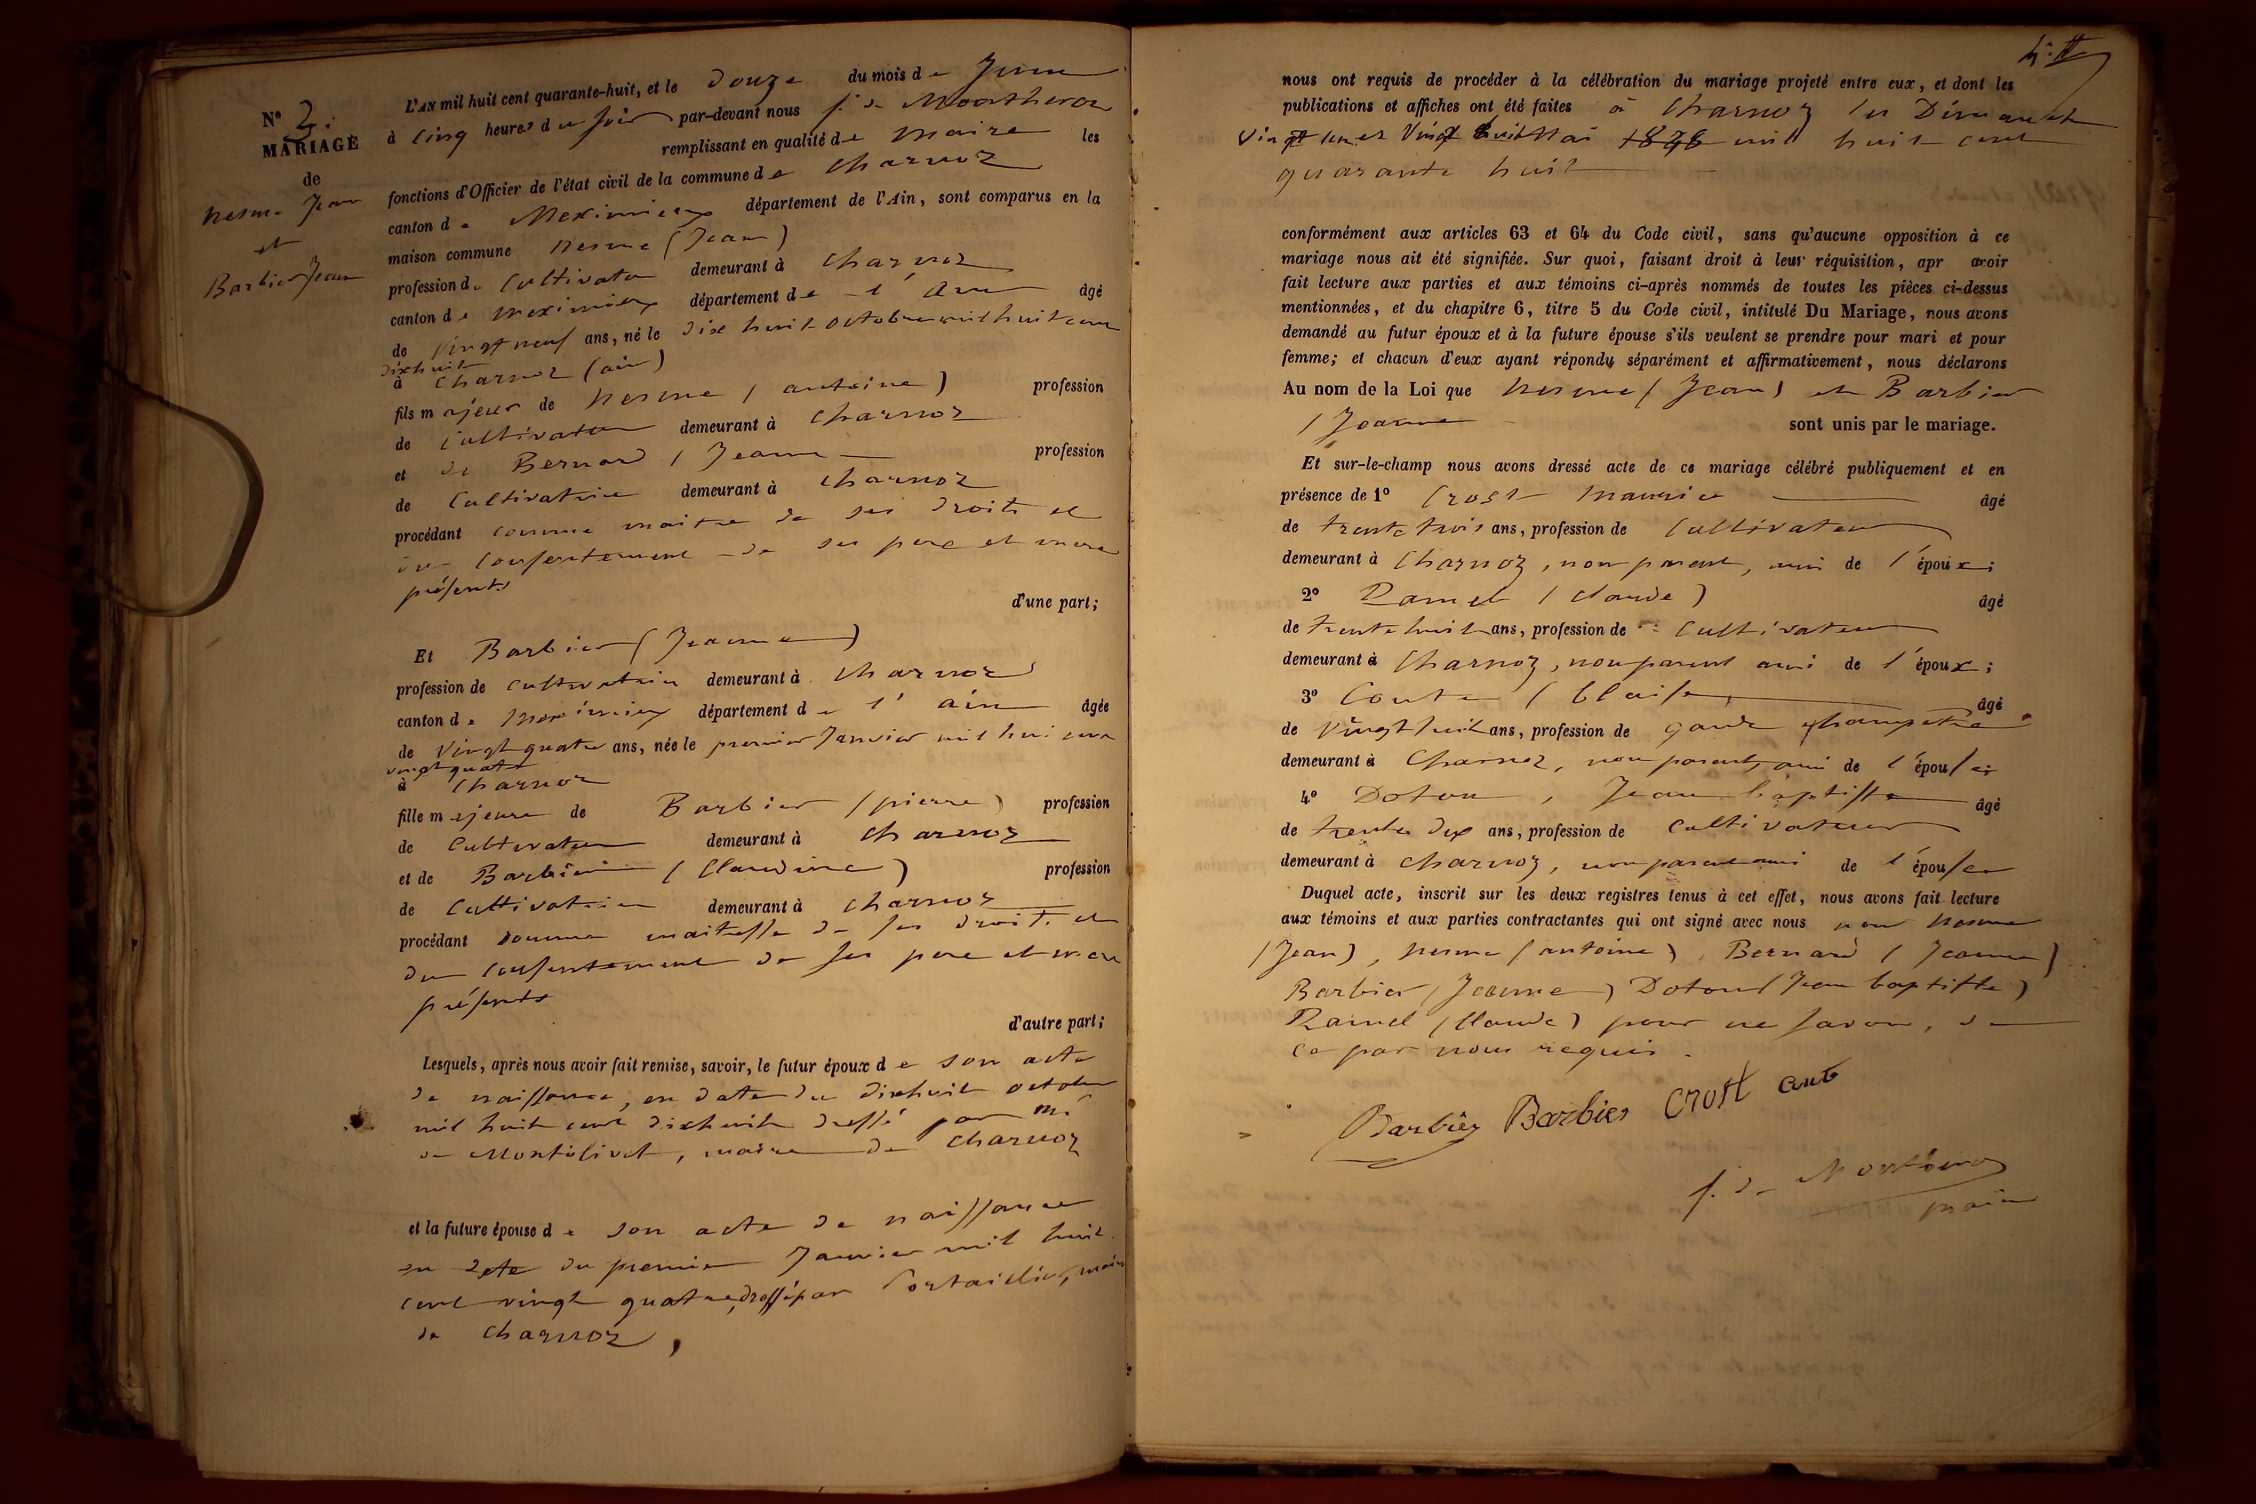 N° 3.
MARIAGE
de
nesme Jean
et
Barbier Jeanne
L'AN mil huit cent quarante-huit, et le Douze du mois de Juin
à cinq heures du soir par-devant nous
remplissant en qualité de maire les
fonctions d'Officier de l'état civil de la commune de Charnoz
canton de Meximieux département de l'Ain, sont comparus en la
maison commune nesme (Jean)
profession de Cultivateur demeurant à Charnoz
canton de meximieux département de l'Ain âgé
de vingt neuf ans, né le dix huit octobre mil huit cent
dixhuit
à Charnoz (ain)
fils majeur de nesme (antoine) profession
de Cultivateur demeurant à Charnoz
et de Bernard (Jeanne profession
de Cultivatrice demeurant à Charnoz
procédant comme maitre de ses droits et
du consentement de ses pere et mere
présents
d'une part;
Et Barbier (Jeanne)
profession de cultivatrice demeurant à Charnoz
canton de meximieux département de l'ain âgée
de vingt quatre ans, née le premier Janvier mil huit cent
vingt quatre
à Charnoz
fille majeure de Barbier (pierre) profession
de Cultivateur demeurant à Charnoz
et de Barbier (Claudine) profession
de Cultivatrice demeurant à Charnoz
procédant comme maitresse de ses droits et
du consentement de ses pere et mere
présents
d'autre part;
Lesquels, après nous avoir fait remise, savoir, le futur époux de son acte
de naissance, en date du dixhuit octobre
mil huit cent dixhuit dressé par mr
de Montolivet, maire de Charnoz
et la future épouse de son acte de naissance
en date du premier Janvier mil huit
cent vingt quatre, dressé par maire
de Charnoz,
nous ont requis de procéder à la célébration du mariage projeté entre eux, et dont les
publications et affiches ont été faites à Charnoz les Dimanche
vingt un et vingt huit Mai 1848 mil huit cent
quarante huit
conformément aux articles 63 et 64 du Code civil, sans qu'aucune opposition à ce
mariage nous ait été signifiée. Sur quoi, faisant droit à leur réquisition, apr avoir
fait lecture aux parties et aux témoins ci-après nommés de toutes les pièces ci-dessus
mentionnées, et du chapitre 6, titre 5 du Code civil, intitulé Du Mariage, nous avons
demandé au futur époux et à la future épouse s'ils veulent se prendre pour mari et pour
femme; et chacun d'eux ayant répondu séparément et affirmativement, nous déclarons
Au nom de la Loi que nesme (Jean) et Barbier
(Jeanne sont unis par le mariage.
Et sur-le-champ nous avons dressé acte de ce mariage célébré publiquement et en
présence de 1° Crost Maurice âgé
de trente trois ans, profession de Cultivateur
demeurant à Charnoz, non parent, ami de l'époux;
2° Ramel (Claude) âgé
de trente huit ans, profession de Cultivateur
demeurant à Charnoz, non parent ami de l'époux;
3° Conte (blaise, âgé
de vingt huit ans, profession de garde champetre
demeurant à Charnoz, non parent, ami de l'épouse
4° Doton, Jean baptiste âgé
de trente dix ans, profession de Cultivateur
demeurant à Charnoz, non parent ami de l'épouse
Duquel acte, inscrit sur les deux registres tenus à cet effet, nous avons fait lecture
aux témoins et aux parties contractantes qui ont signé avec nous non nesme
(Jean), nesme (antoine), Bernard (Jeanne)
Barbier (Jeanne) Doton (Jean baptiste)
Ramel (Claude) pour ne savoir, de
ce par nous requis.
Barbier Barbier Crost Conte
maire